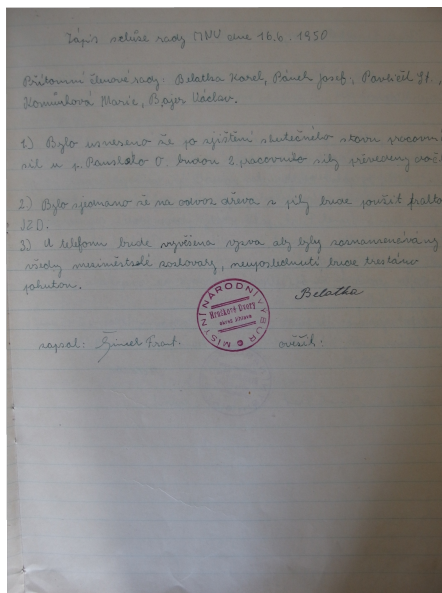 Zápis schůse rady MNV dne 16.6. 1950
Přítomni členové rady: Belatka Karel, Pánek Josef, Pavlíček St.,
Komínková Marie, Bajer Václav.
1) Bylo usneseno že po zjištění skutečného stavu pracovn
sil u p. Panského O. budou 2 pracovníci síly převedeny
2) Bylo sjednano že na odvoz dřeva z pily bude použit
JZD.
3) U telefonu bude vyvěšena výzva aby byly zaznamenávány
všechny meziměstské rozhovory, neuposlechnutí bude trestáno
pokutou.
Belatka
MÍSTNÍ NÁRODNÍ VÝBOR
Hruškové Dvory
zapsal: Šimek Frant. ověřil: